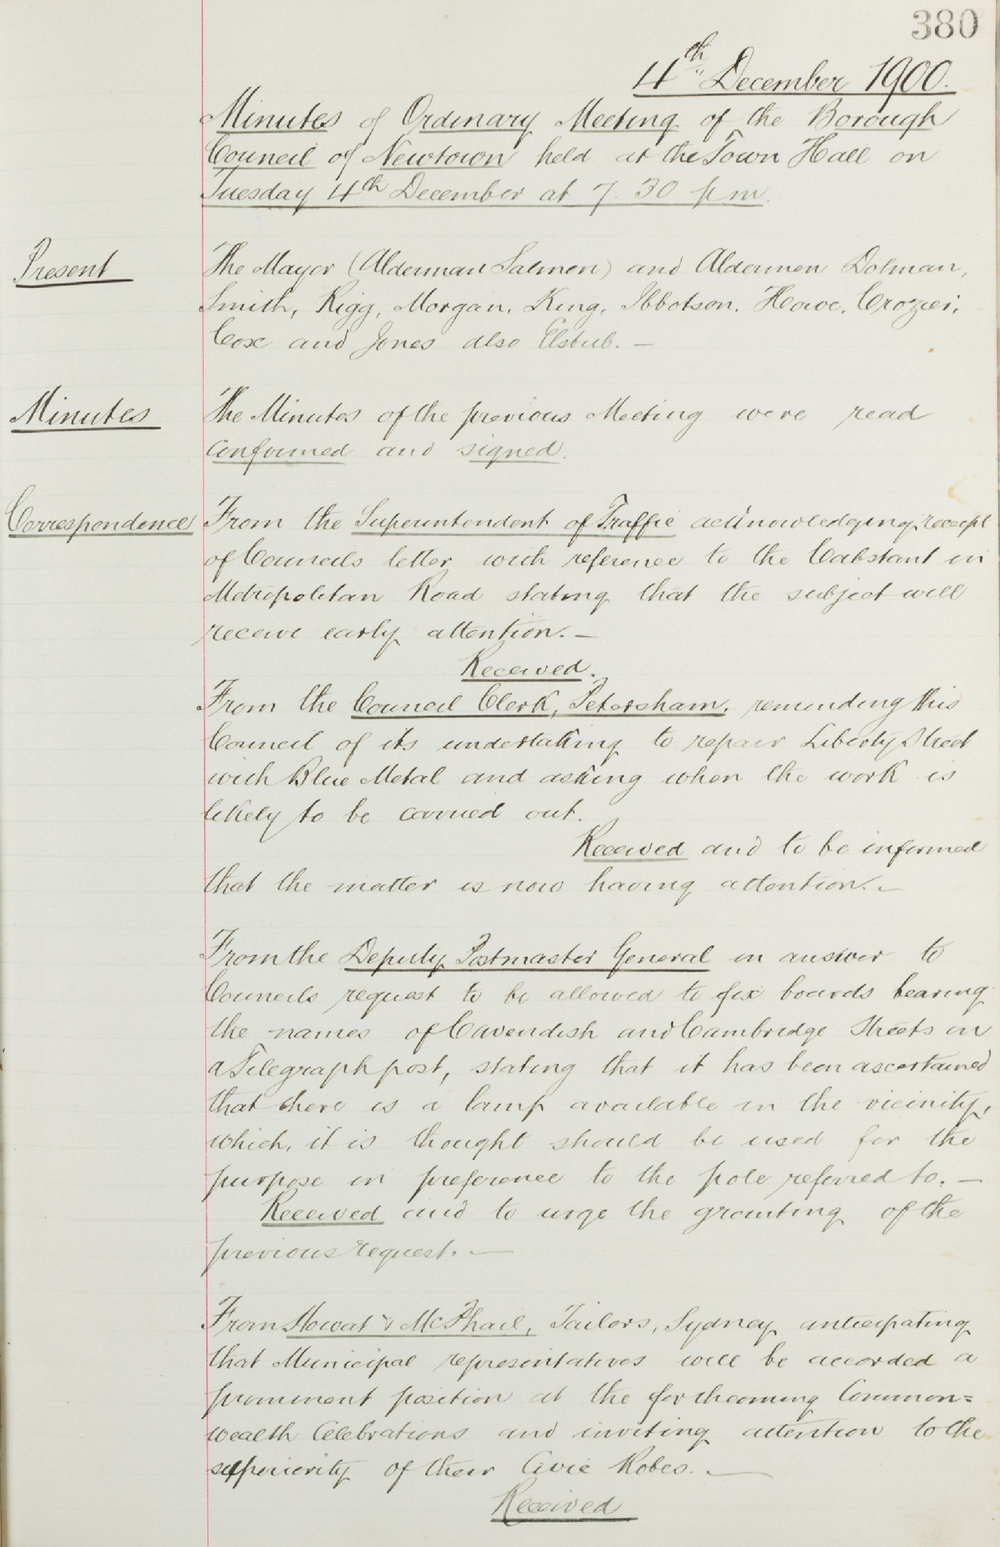 380
4th December 1900.
Minutes of Ordinary Meeting of the Borough
Council of Newtown held at the Town Hall on
Tuesday 4th December at 7.30 pm.
Present
The Mayor (Alderman Salmon) and Aldermen Dolman,
Smith, Rigg, Morgan, King, Ibbotson, Howe, Crozier,
Cox and Jones also Elstub. —
Minutes
The Minutes of the previous Meeting were read
confirmed and signed.
Correspondence
From the Superintendent of Traffic acknowledging receipt
of Councils letter with reference to the Cabstant in
Metropolitan Road stating that the subject will
receive early attention. —
Received.
From the Council Clerk, Petersham, reminding this
Council of its undertaking to repair Liberty Street
with Blue Metal and asking when the work is
likely to be carried out.
Received and to be informed
that the matter is now having attention. —
From the Deputy Postmaster General in answer to
Councils request to be allowed to fix boards bearing
the names of Cavendish and Cambridge Streets on
a Telegraph post, stating that it has been ascertained
that there is a lamp available in the vicinity,
which, it is thought should be used for the
purpose in preference to the pole referred to. —
Received and to urge the granting of the
previous request. —
From Howat & McPhail, Tailors, Sydney anticipating
that Municipal representatives will be accorded a
prominent position at the forthcoming Common=
wealth Celebrations and inviting attention to the
superiority of their Civic Robes. —
Received